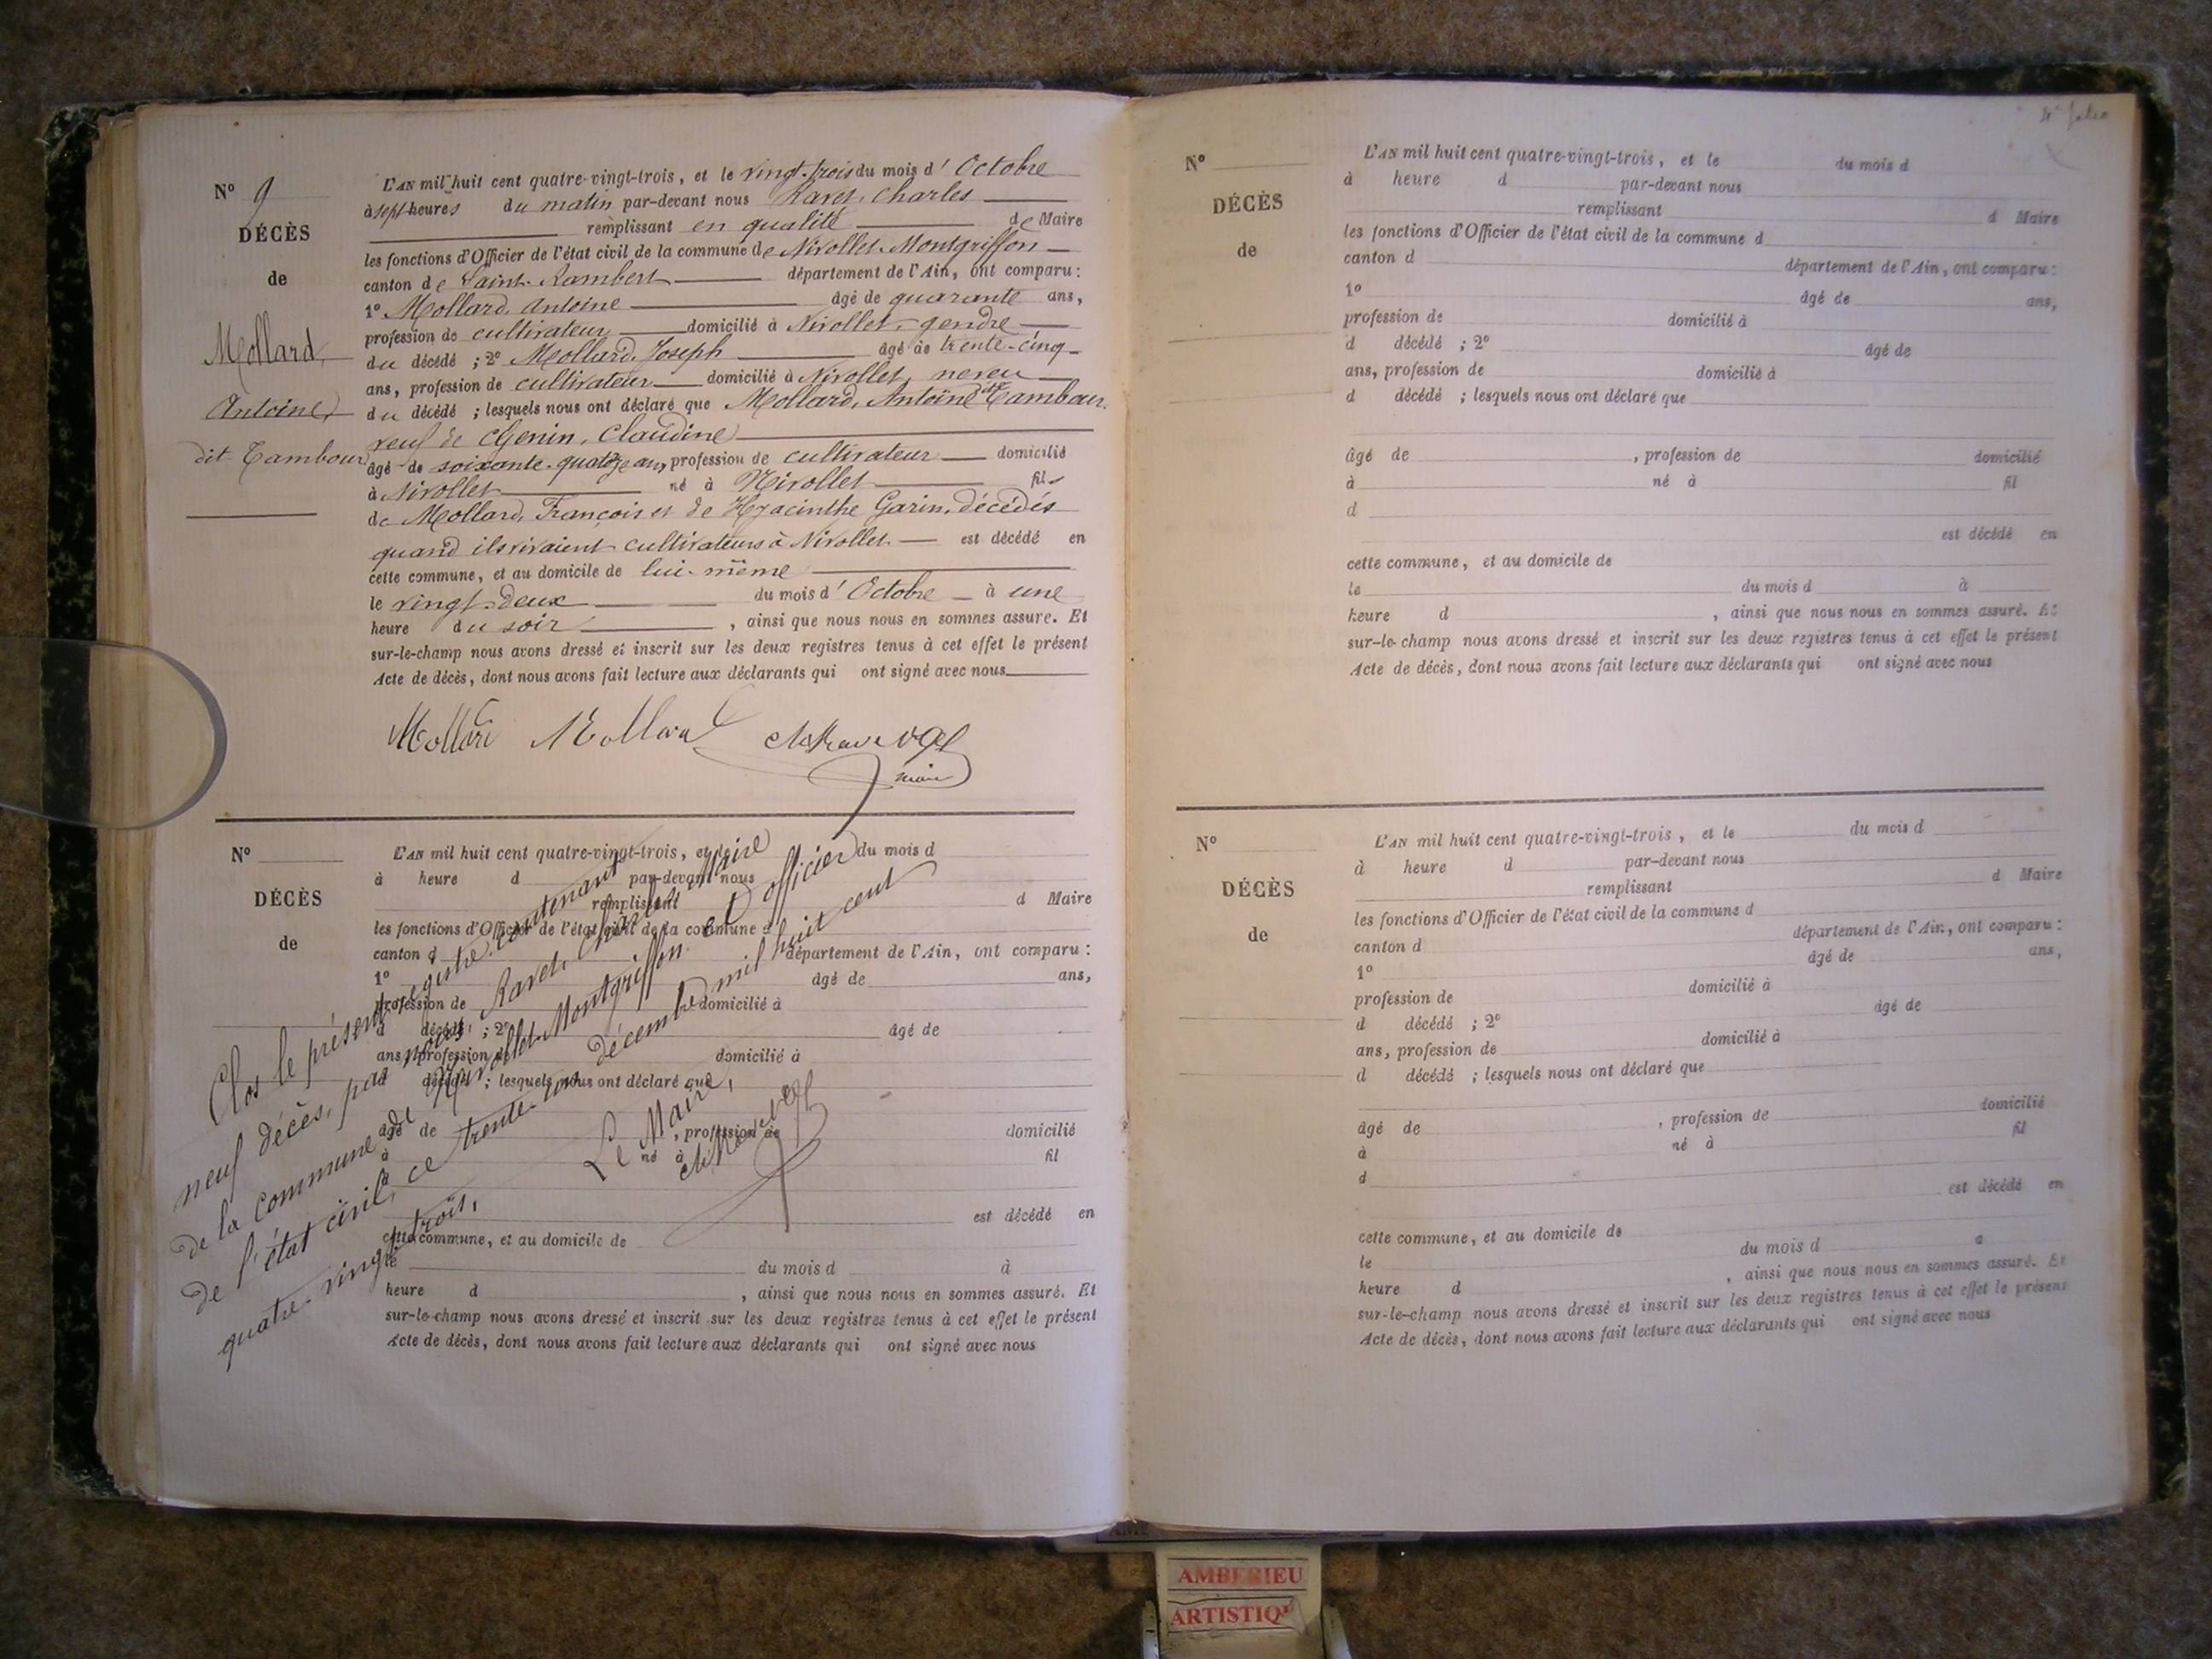 N° 9
DÉCÈS
de
Mollard,
Antoine,
dit Tambour
L'AN mil huit cent quatre-vingt-trois, et le vingt-trois du mois d' Octobre
à sept heures du matin par-devant nous Ravet, Charles
remplissant en qualité de Maire
les fonctions d'Officier de l'état civil de la commune de Nivollet-Montgriffon
canton de Saint-Rambert département de l'Ain, ont comparu :
1° Mollard, Antoine âgé de quarante ans,
profession de cultivateur domicilié à Nivollet, gendre
du décédé ; 2° Mollard, Joseph âgé de trente-cinq
ans, profession de cultivateur domicilié à Nivollet, neveu
du décédé ; lesquels nous ont déclaré que Mollard, Antoine dit Tambour,
veuf de Genin, Claudine
âgé de soixante-quatorze ans, profession de cultivateur domicilié
à Nivollet né à Nivollet fils
de Mollard, François et de Hyacinthe Garin, décédés
quand ils vivaient cultivateurs à Nivollet est décédé en
cette commune, et au domicile de lui-même
le vingt-deux du mois d' Octobre à une
heure du soir, ainsi que nous nous en sommes assuré. Et
sur-le-champ nous avons dressé et inscrit sur les deux registres tenus à cet effet le présent
Acte de décès, dont nous avons fait lecture aux déclarants qui ont signé avec nous
Mollard Mollard
maire
N°
DÉCÈS
de
L'AN mil huit cent quatre-vingt-trois, et le du mois d
à heure d par-devant nous
remplissant d Maire
les fonctions d'Officier de l'état civil de la commune d
canton d département de l'Ain, ont comparu :
1° âgé de ans,
profession de domicilié à
d décédé ; 2° âgé de
ans, profession de domicilié à
d décédé ; lesquels nous ont déclaré que
âgé de , profession de domicilié
à né à fil
d
est décédé en
cette commune, et au domicile de
le du mois d à
heure d , ainsi que nous nous en sommes assuré. Et
sur-le-champ nous avons dressé et inscrit sur les deux registres tenus à cet effet le présent
Acte de décès, dont nous avons fait lecture aux déclarants qui ont signé avec nous
Clos le présent registre contenant
neuf décès, par nous, Ravet, Charles, Maire
de la commune de Nivollet-Montgriffon et officier
de l'état civil, ce trente-un décembre mil huit cent
quatre-vingt-trois.
Le Maire,
4e folio
N°
DÉCÈS
de
L'AN mil huit cent quatre-vingt-trois, et le du mois d
à heure d par-devant nous
remplissant d Maire
les fonctions d'Officier de l'état civil de la commune d
canton d département de l'Ain, ont comparu :
1° âgé de ans,
profession de domicilié à
d décédé ; 2° âgé de
ans, profession de domicilié à
d décédé ; lesquels nous ont déclaré que
âgé de , profession de domicilié
à né à fil
d
est décédé en
cette commune, et au domicile de
le du mois d à
heure d , ainsi que nous nous en sommes assuré. Et
sur-le-champ nous avons dressé et inscrit sur les deux registres tenus à cet effet le présent
Acte de décès, dont nous avons fait lecture aux déclarants qui ont signé avec nous
N°
DÉCÈS
de
L'AN mil huit cent quatre-vingt-trois, et le du mois d
à heure d par-devant nous
remplissant d Maire
les fonctions d'Officier de l'état civil de la commune d
canton d département de l'Ain, ont comparu :
1° âgé de ans,
profession de domicilié à
d décédé ; 2° âgé de
ans, profession de domicilié à
d décédé ; lesquels nous ont déclaré que
âgé de , profession de domicilié
à né à fil
d
est décédé en
cette commune, et au domicile de
le du mois d à
heure d , ainsi que nous nous en sommes assuré. Et
sur-le-champ nous avons dressé et inscrit sur les deux registres tenus à cet effet le présent
Acte de décès, dont nous avons fait lecture aux déclarants qui ont signé avec nous
AMBERIEU
ARTISTIQU